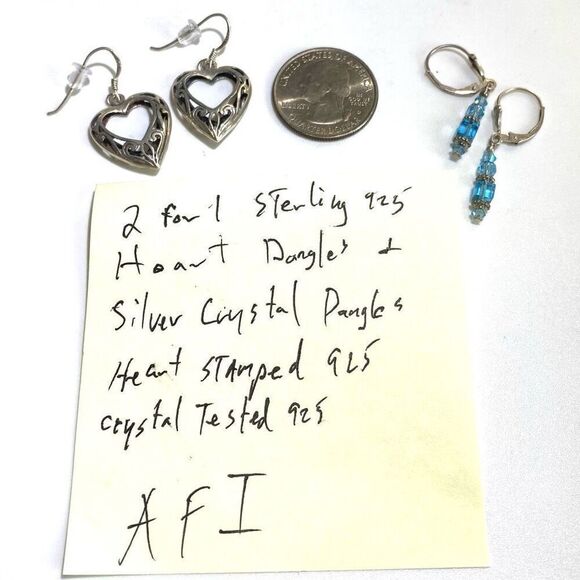 UNITED STATES OF AMERICA
LIBERTY
IN GOD WE TRUST
QUARTER DOLLAR
2 for 1 Sterling 925
Heart Dangles +
Silver Crystal Dangles
Heart STamped 925
Crystal Tested 925
AFI